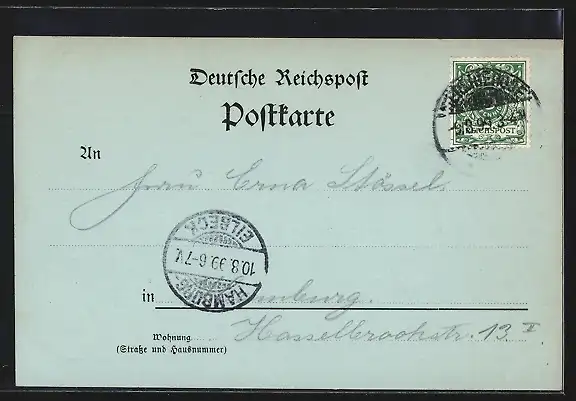 Deutsche Reichspost
Postkarte
REICHSPOST
An
Frau Erna Stössel
HAMBURG-
EILBECK
10.8.99.6-7V.
in Hamburg.
Hasselbrookstr. 13 I
Wohnung
(Straße und Hausnummer)